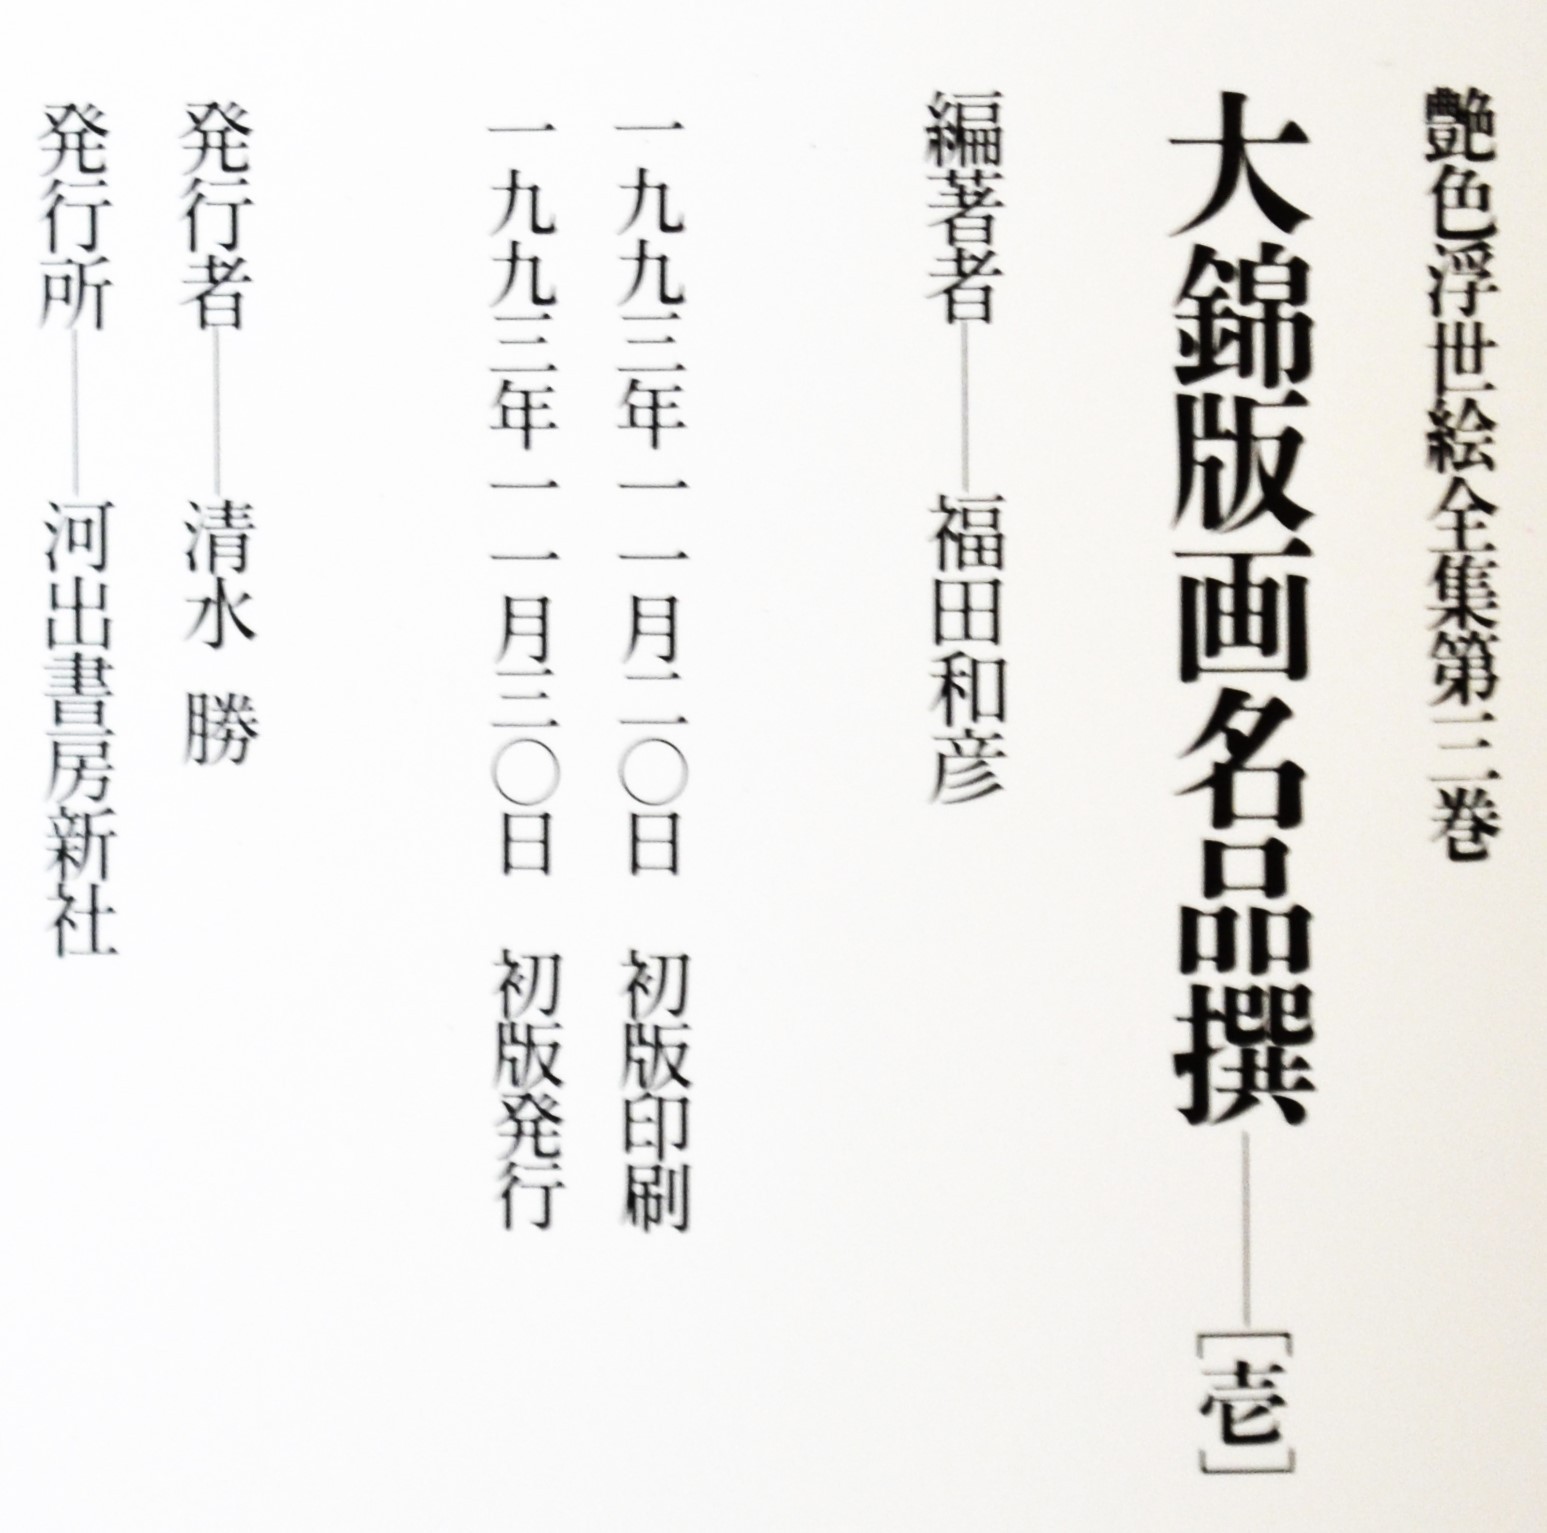 艶色浮世絵全集第三巻
大錦版画名品撰——[壱]
編著者——福田和彦
一九九三年一一月二〇日 初版印刷
一九九三年一一月三〇日 初版発行
発行者——清水 勝
発行所——河出書房新社